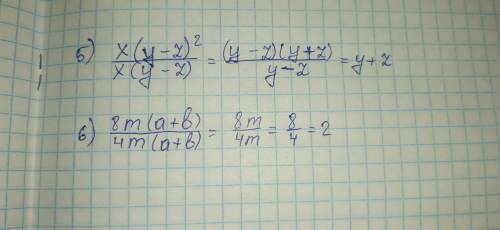 5) x(y-z)²/x(y-z) = (y-z)(y+z)/y-z = y+z
6) 8m(a+b)/4m(a+b) = 8m/4m = 8/4 = 2